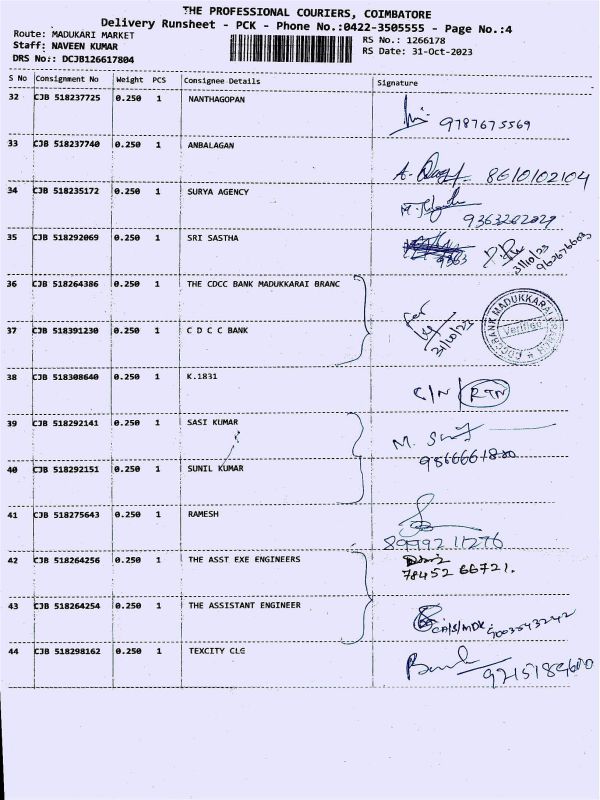 THE PROFESSIONAL COURIERS, COIMBATORE
Delivery Runsheet - PCK - Phone No.:0422-3505555 - Page No.:4
Route: MADUKARI MARKET
Staff: NAVEEN KUMAR
DRS No:: DCJB126617804
RS No.: 1266178
RS Date: 31-Oct-2023
S No Consignment No Weight PCS Consignee Details Signature
32 CJB 518237725 0.250 1 NANTHAGOPAN
9787675569
33 CJB 518237740 0.250 1 ANBALAGAN
8610102104
34 CJB 518235172 0.250 1 SURYA AGENCY
35 CJB 518292069 0.250 1 SRI SASTHA
9363
31/10/23
36 CJB 518264386 0.250 1 THE CDCC BANK MADUKKARAI BRANC
for
31/10/23
CDCC BANK MADUKKARAI BRANCH
Verified
37 CJB 518391230 0.250 1 C D C C BANK
38 CJB 518308640 0.250 1 K.1831
C/N RTN
39 CJB 518292141 0.250 1 SASI KUMAR
40 CJB 518292151 0.250 1 SUNIL KUMAR
41 CJB 518275643 0.250 1 RAMESH
89992 11276
42 CJB 518264256 0.250 1 THE ASST EXE ENGINEERS
78452 66721.
43 CJB 518264254 0.250 1 THE ASSISTANT ENGINEER
44 CJB 518298162 0.250 1 TEXCITY CLG